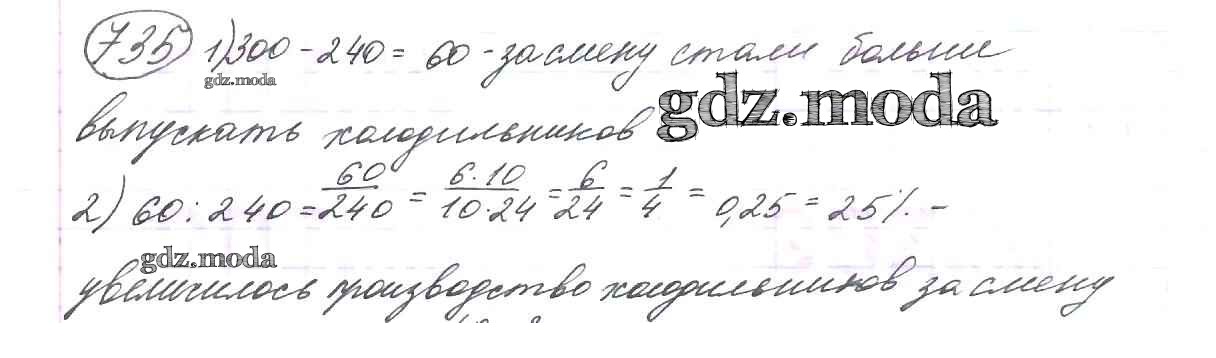 735 1) 300 - 240 = 60 - за смену стали больше
gdz.moda
gdz.moda
выпускать холодильников
2) 60 : 240 = 60/240 = 6·10/10·24 = 6/24 = 1/4 = 0,25 = 25% -
gdz.moda
увеличилось производство холодильников за смену